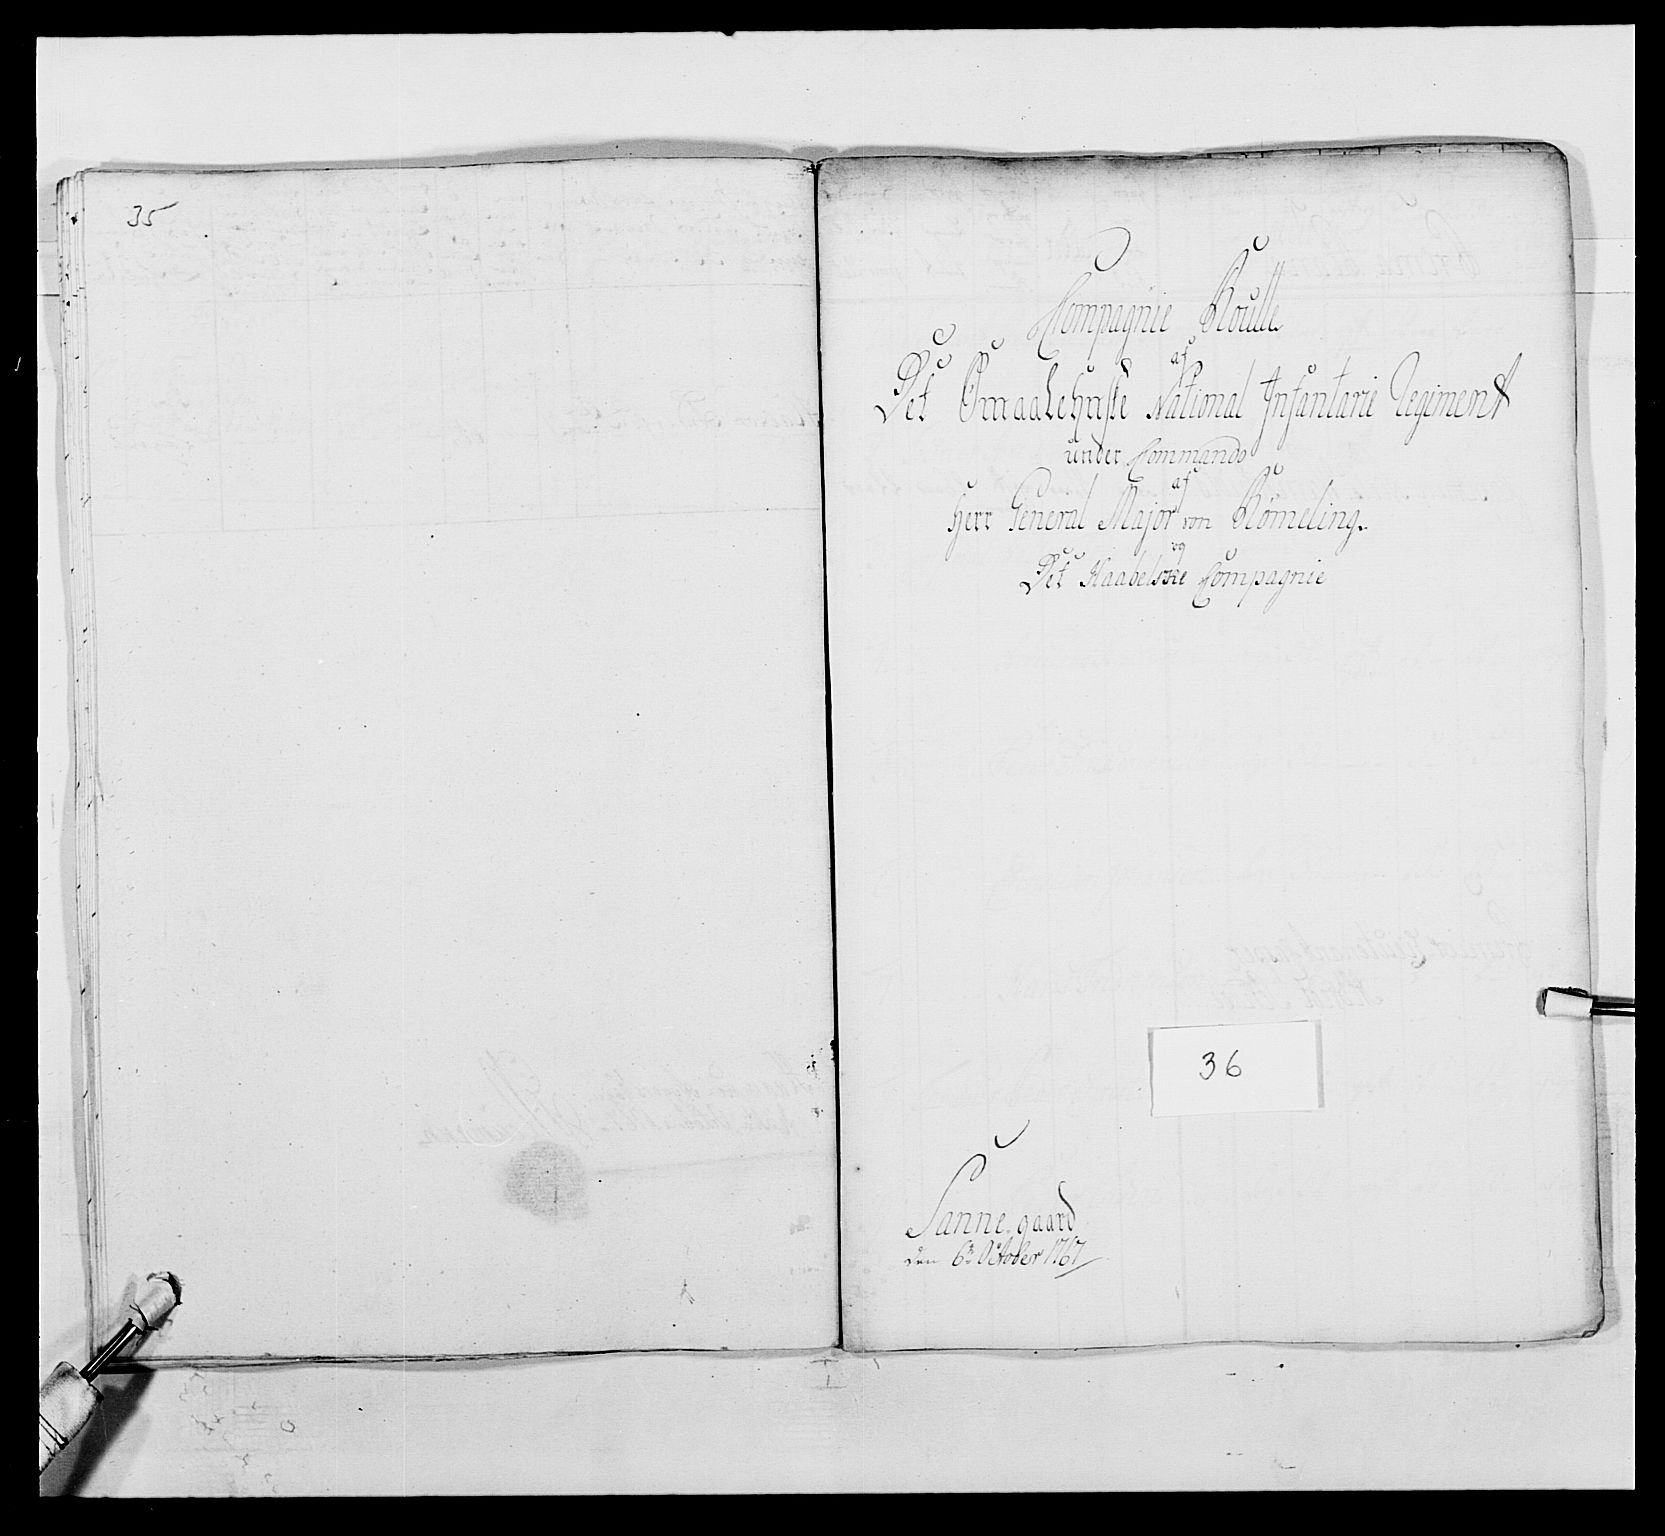 35
Compagnie Roulle
af
Det Smaalehnske National Infantarie Regiment
under Commando
af
Herr General Major von Römeling.
og
Det Haabelske Compagnie
36
Sanne gaard
den 6te October 1767